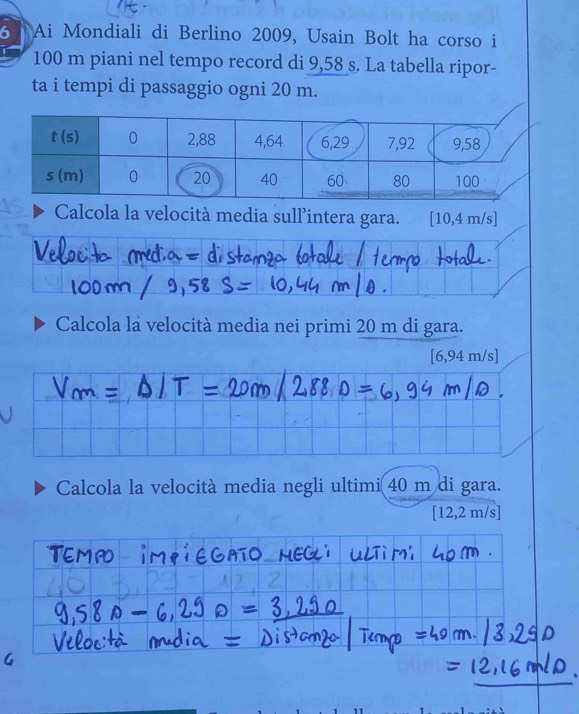 6 Ai Mondiali di Berlino 2009, Usain Bolt ha corso i
100 m piani nel tempo record di 9,58 s. La tabella ripor-
ta i tempi di passaggio ogni 20 m.
t (s) 0 2,88 4,64 6,29 7,92 9,58
s (m) 0 20 40 60 80 100
Calcola la velocità media sull'intera gara. [10,4 m/s]
Velocità media = distanza totale / tempo totale.
100m / 9,58 s = 10,44 m/s.
Calcola la velocità media nei primi 20 m di gara.
[6,94 m/s]
Vm = S/T = 20m / 2,88 s = 6,94 m/s.
Calcola la velocità media negli ultimi 40 m di gara.
[12,2 m/s]
TEMPO IMPIEGATO NEGLI ULTIMI 40m.
9,58 s - 6,29 s = 3,29 s
Velocità media = Distanza / Tempo = 40m. / 3,29 s
= 12,16 m/s.